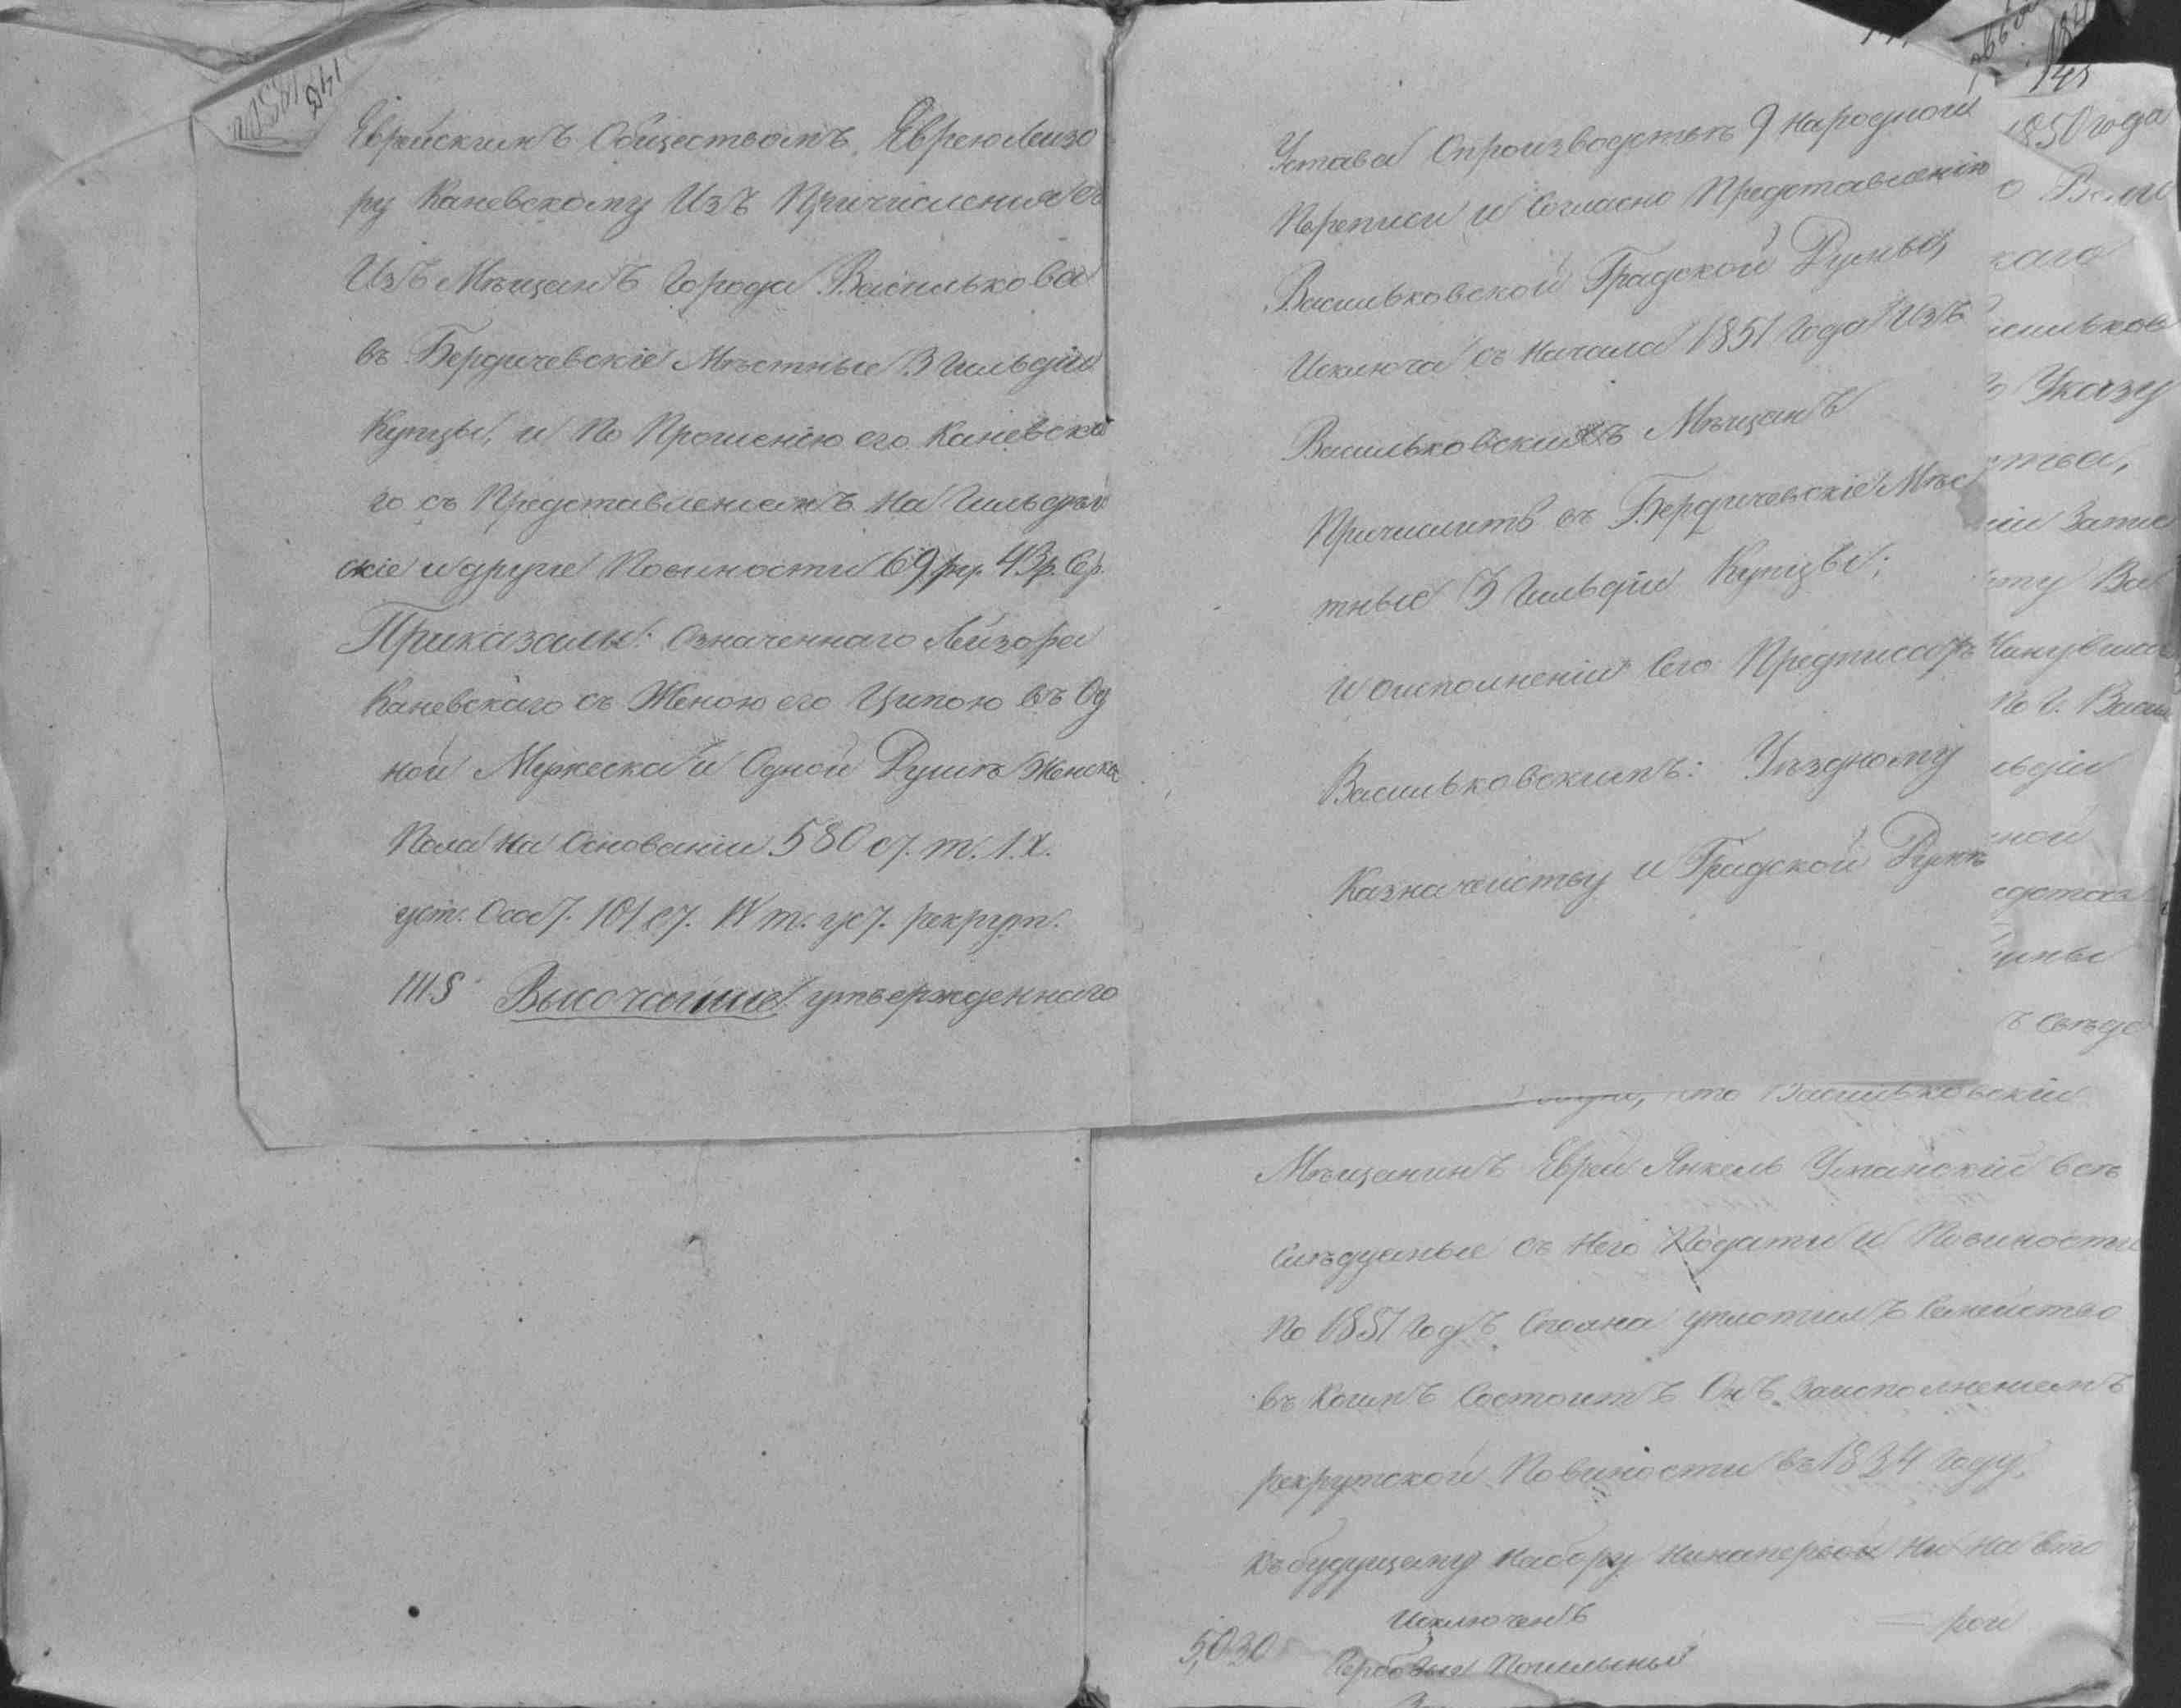 Еврейскимъ Обществомъ, Еврею Лейзо
ру Каневскому Изъ Причисления его
Изъ Мѣщанъ Города Василькова
въ Бердичевскіе Мѣстные 3 Гильдіи
Купцы, и По Прошенію его Каневска
го съ Представленіемъ На Гильдѣй
скіе и другіе Повиности 69 ру. 43 р. Сер.
Приказали: Означеннаго Лейзора
Каневскаго съ Женою его Ципою въ Од
ной Мужеска и Одной Душѣ Женска
Пола На Основаніи 580 ст. т. IX.
уст. Сост. 101 ст. IV т. уст. рекрут.
III § Высочайше утвержденнаго
Устава О производствѣ 9 народной
Переписи и Согласно Представленію
Васильковской Градской Думы,
Исключа съ Начала 1851 Года Изъ
Васильковскихъ Мѣщанъ
Причислить въ Бердичевскіе Мѣс
тные 3 Гильдіи Купцы;
И О исполненіи Сего Предписать
Васильковскимъ: Уѣздному
Казначейству и Градской Думѣ
145
1850 года
каго
Указу
ства,
По Г. Васил
что Васильковскій
Мѣщанинъ Еврей Янкель Уманскій Всѣ
Слѣдуемые съ Него Подати и Повиности
По 1851 Годъ Сполна уплотилъ Семейство
въ Коимъ Состоитъ Онъ За исполненіемъ
рекрутской Повиности въ 1834 Году,
Къ будущему Набору Ни на первой Ни На вто
рой
Исключенъ
5,030 Гербовыя Пошлины